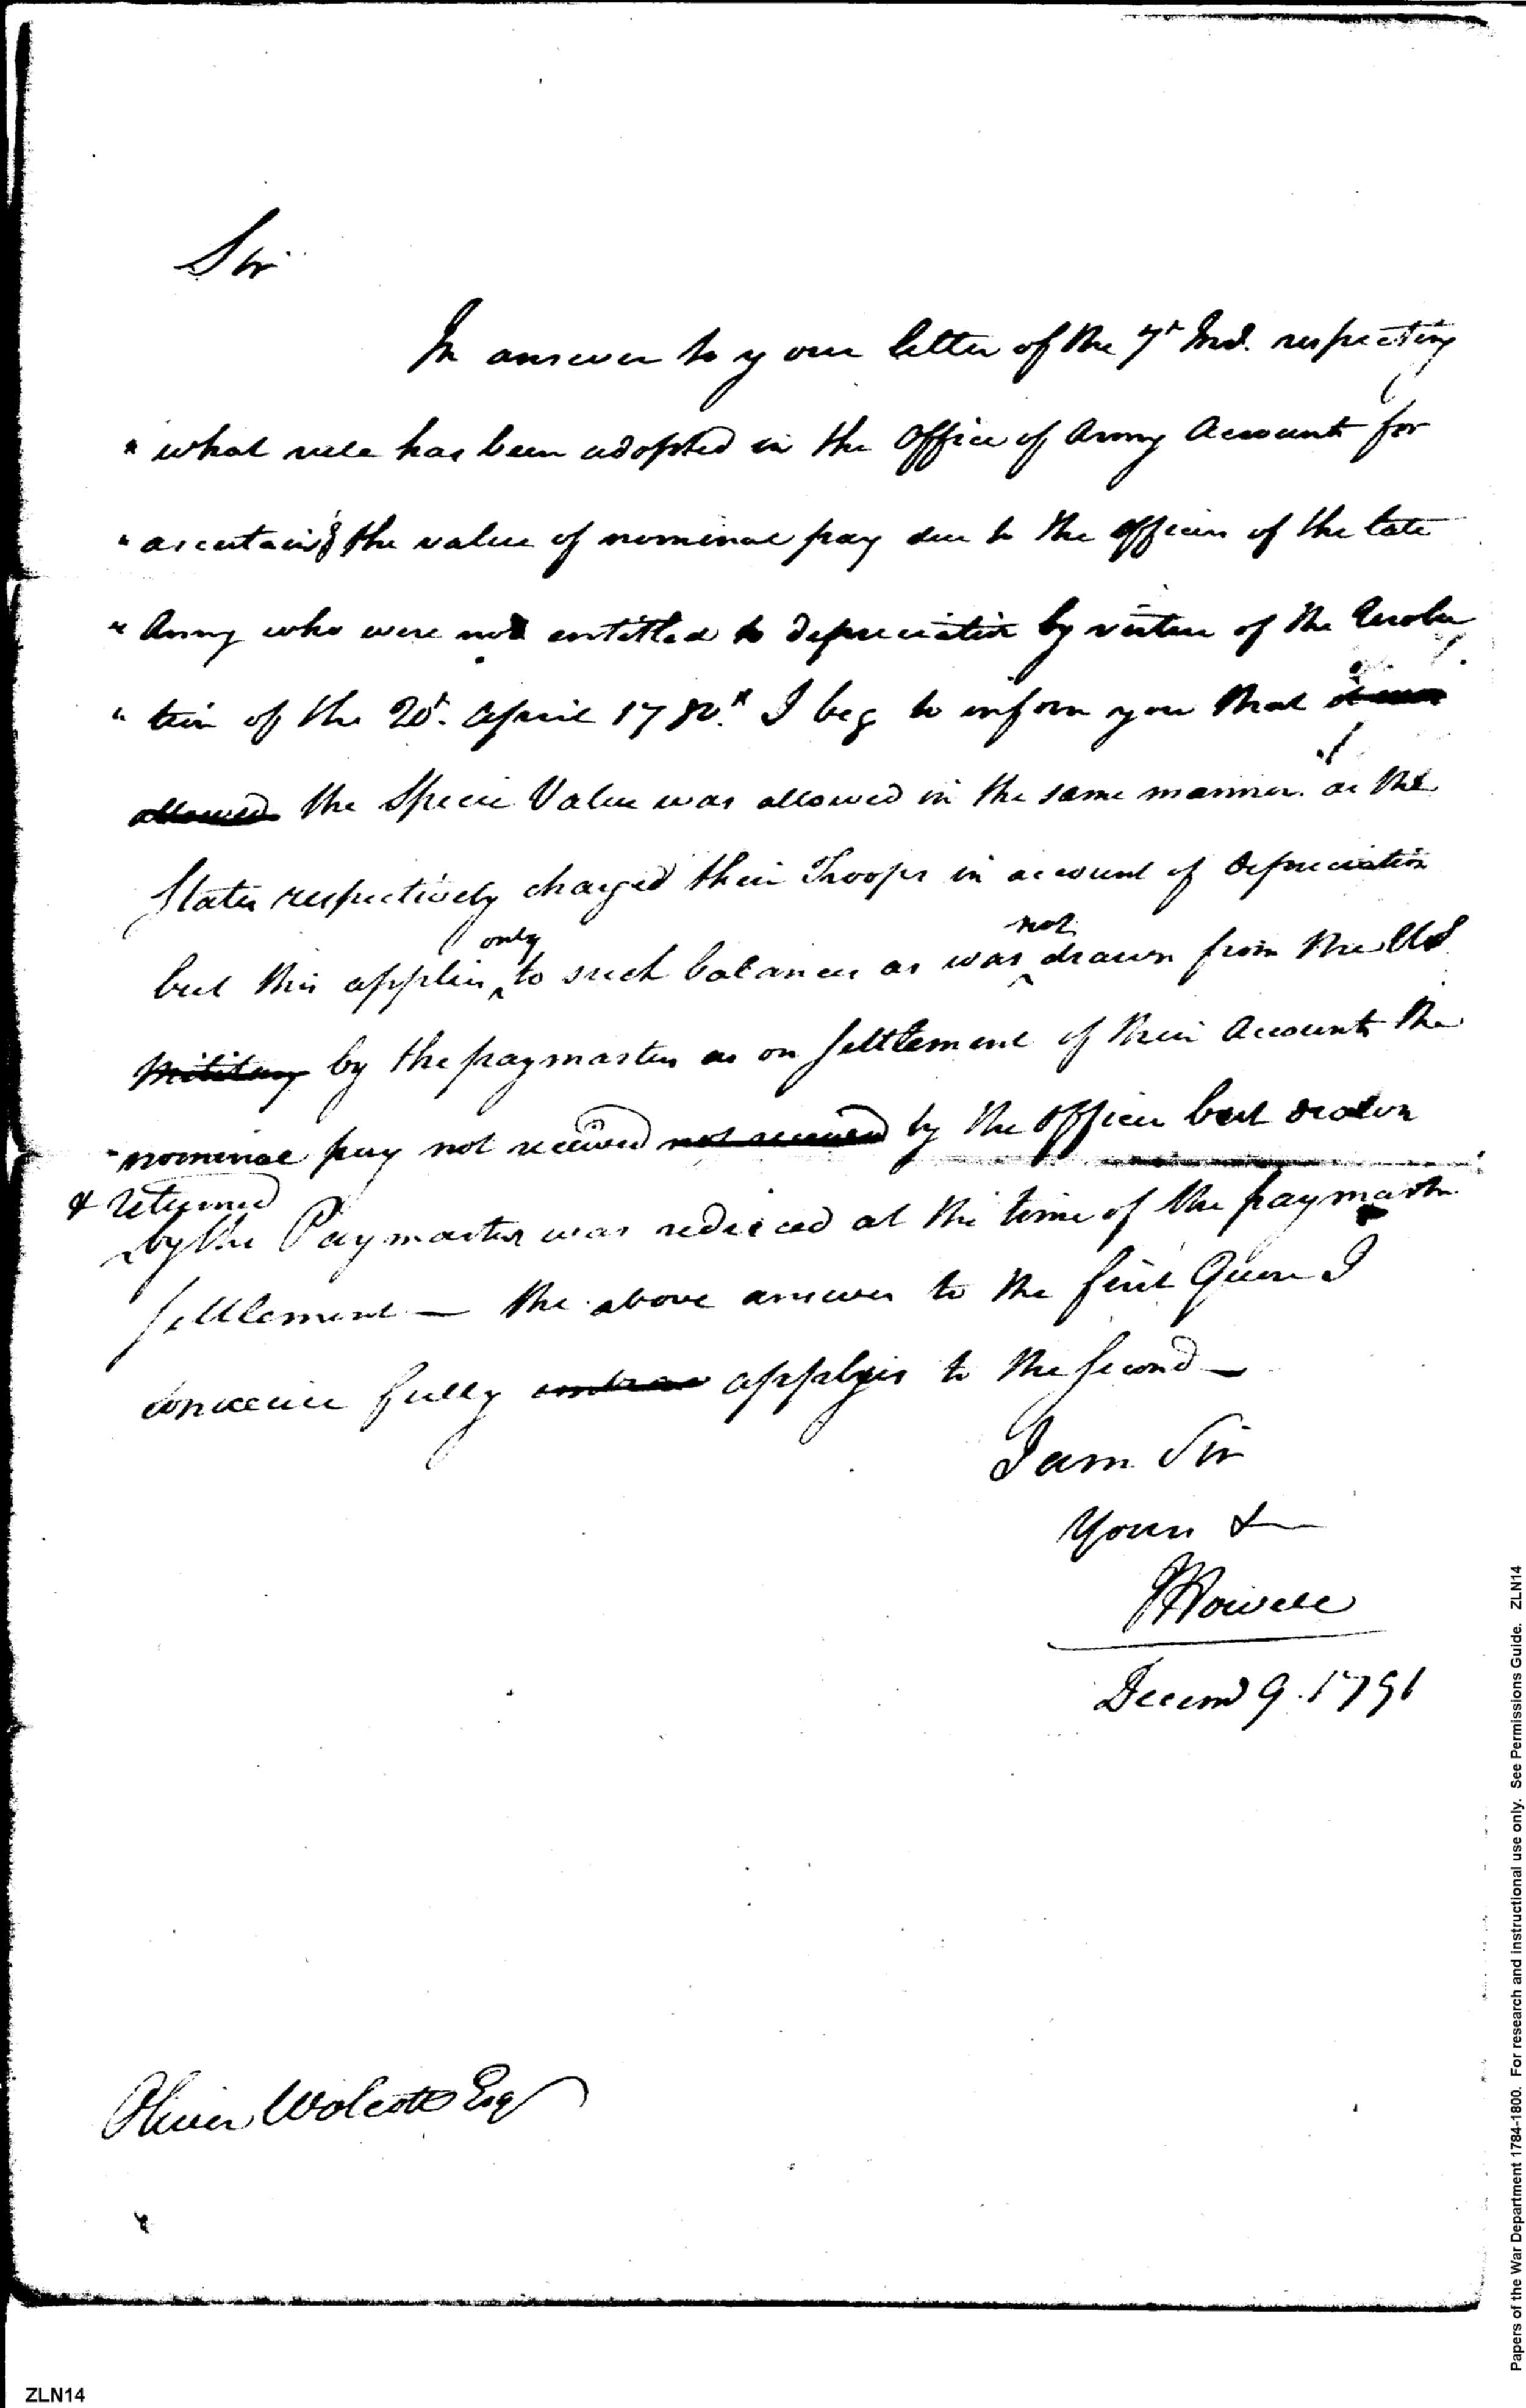 Sir
In answer to your letter of the 7t Inst. respecting
" what rule has been adopted in the Office of Army Accounts for
" ascertaing the value of nominal pay due to the officers of the late
" Army who were not entitled to depreciation by virtue of the Resolu
" tion of the 20t. April 1780." I beg to inform you that it was
allowed the Specie Value was allowed in the same manner as the
States respectively charged their Troops in account of depreciation
but this applies only to such balances as was not drawn from the US
by the paymasters as on settlement of their Accounts the
nominal pay not received not received by the officer but drawn
& returned
by the Paymaster was reduced at the time of the paymaster
settlement — the above answer to the first Quere I
conceive fully applyes to the second —
I am Sir
Yours &
JHowell
Decemr 9. 1791
Oliver Wolcott Esq
ZLN14
Papers of the War Department 1784-1800. For research and instructional use only. See Permissions Guide. ZLN14